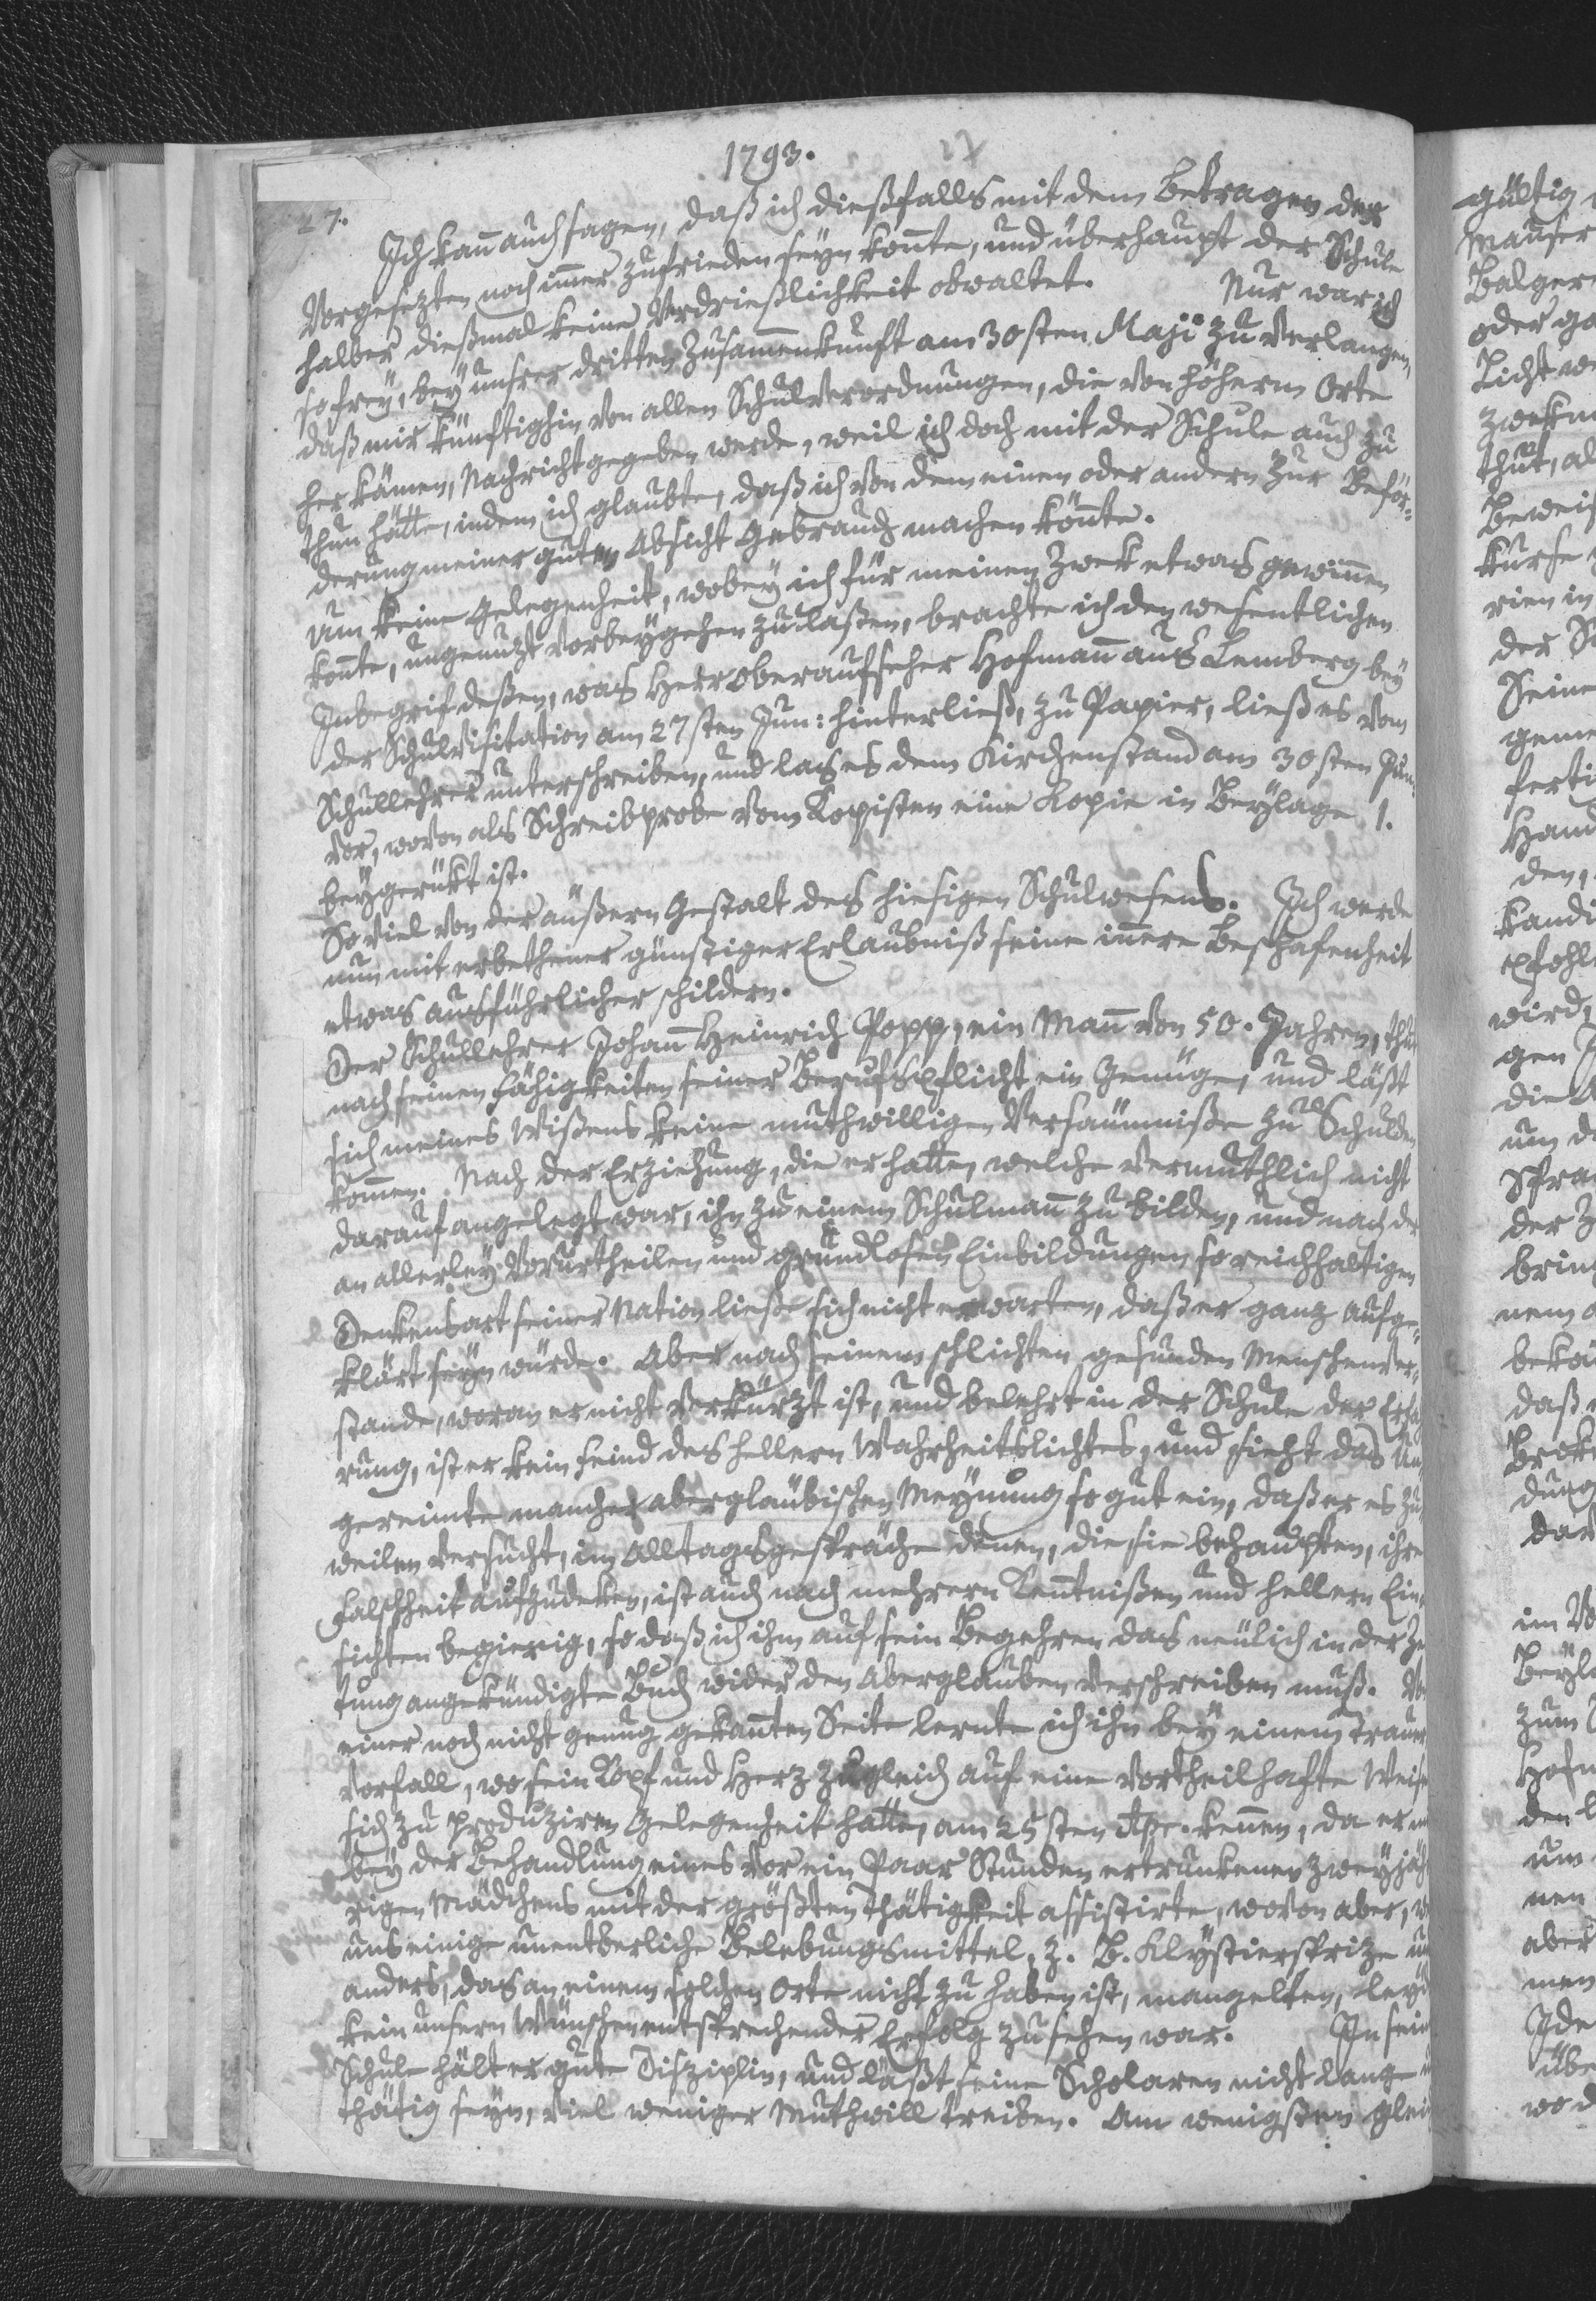 1793.
27
27.
Ich kann auch sagen, daß ich dießfalls mit dem Betragen der
Vorgesezten noch immer zufrieden seyn konnte, und überhaupt der Schule
halber dießmal keine Verdrießlichkeit obwaltet. Nur war ich
so frey, bey unsrer dritten Zusammenkunft am 30sten Maji zu verlangen,
daß mir künftighin von allen Schulverordnungen, die von höherm Orte
her kämen, Nachricht gegeben werde, weil ich doch mit der Schule auch zu
thun hätte, indem ich glaubte, daß ich von dem einen oder andern zur Beför-
derung meiner guten Absicht Gebrauch machen könnte.
Um keine Gelegenheit, wobey ich für meinen Zwek etwas gewinnen
konnte, ungenuzt vorbeygehen zu laßen, brachte ich den wesentlichen
Inbegrif deßen, was Herr Oberaufseher Hofmann aus Lemberg bey
der Schulvisitation am 27sten Jun: hinterließ, zu Papier, ließ es vom
Schullehrer unterschreiben, und las es dem Kirchenstand am 30sten Jun:
vor, wovon als Schreibprobe vom Kopisten eine Kopie in Beylage 1.
beygerükt ist.
So viel von der äußern Gestalt des hiesigen Schulwesens. Ich werde
nun mit erbethener günstiger Erlaubniß seine innere Beschafenheit
etwas ausführlicher schildern.
Der Schullehrer Johann Heinrich Popp, ein Mann von 50. Jahren, thut
nach seinen Fähigkeiten seiner Berufspflicht ein Genüge, und läßt
sich meines Wißens keine muthwilligen Versäumniße zu Schulden
kommen. Nach der Erziehung, die er hatte, welche vermuthlich nicht
darauf angelegt war, ihn zu einem Schulmann zu bilden, und nach der
an allerley Vorurtheilen und grundlosen Einbildungen so reichhaltigen
Denkensart seiner Nation ließe sich nicht erwarten, daß er ganz aufge-
klärt seyn würde. Aber nach seinem schlichten gesunden Menschenver-
stande, woran er nicht verkürzt ist, und belehrt in der Schule der Erfah
rung, ist er kein Feind des hellern Wahrheitslichtes, und sieht das Un-
gereimte mancher abergläubischen Meynung so gut ein, daß er es zu
weilen versucht, im Alltagsgespräche denen, die sie behaupten, ihre
Falschheit aufzudeken, ist auch nach mehrern Kenntnißen und hellern Ein-
sichten begierig, so daß ich ihm auf sein Begehren das neulich in der Zei
tung angekündigte Buch wider den Aberglauben verschreiben muß. Von
einer noch nicht genug gekannten Seite lernte ich ihn bey einem Trauer
vorfall, wo sein Kopf und Herz zugleich auf eine vortheilhafte Weise
sich zu produziren Gelegenheit hatte, am 25sten Apr. kennen, da er
bey der Behandlung eines vor ein Paar Stunden ertrunkenen zweyjäh
rigen Mädchens mit der größten Thätigkeit assistirte, wovon aber,
uns einige unentberliche Belebungsmittel, z. B. Klystierspritze
anders, das an einem solchen Orte nicht zu haben ist, mangelten,
kein unsern Wünschen entsprechender Erfolg zu sehen war. In sein
Schule hält er gute Disziplin, und läßt seine Scholaren nicht lange
thätig seyn, viel weniger Muthwill treiben. Am wenigsten glei